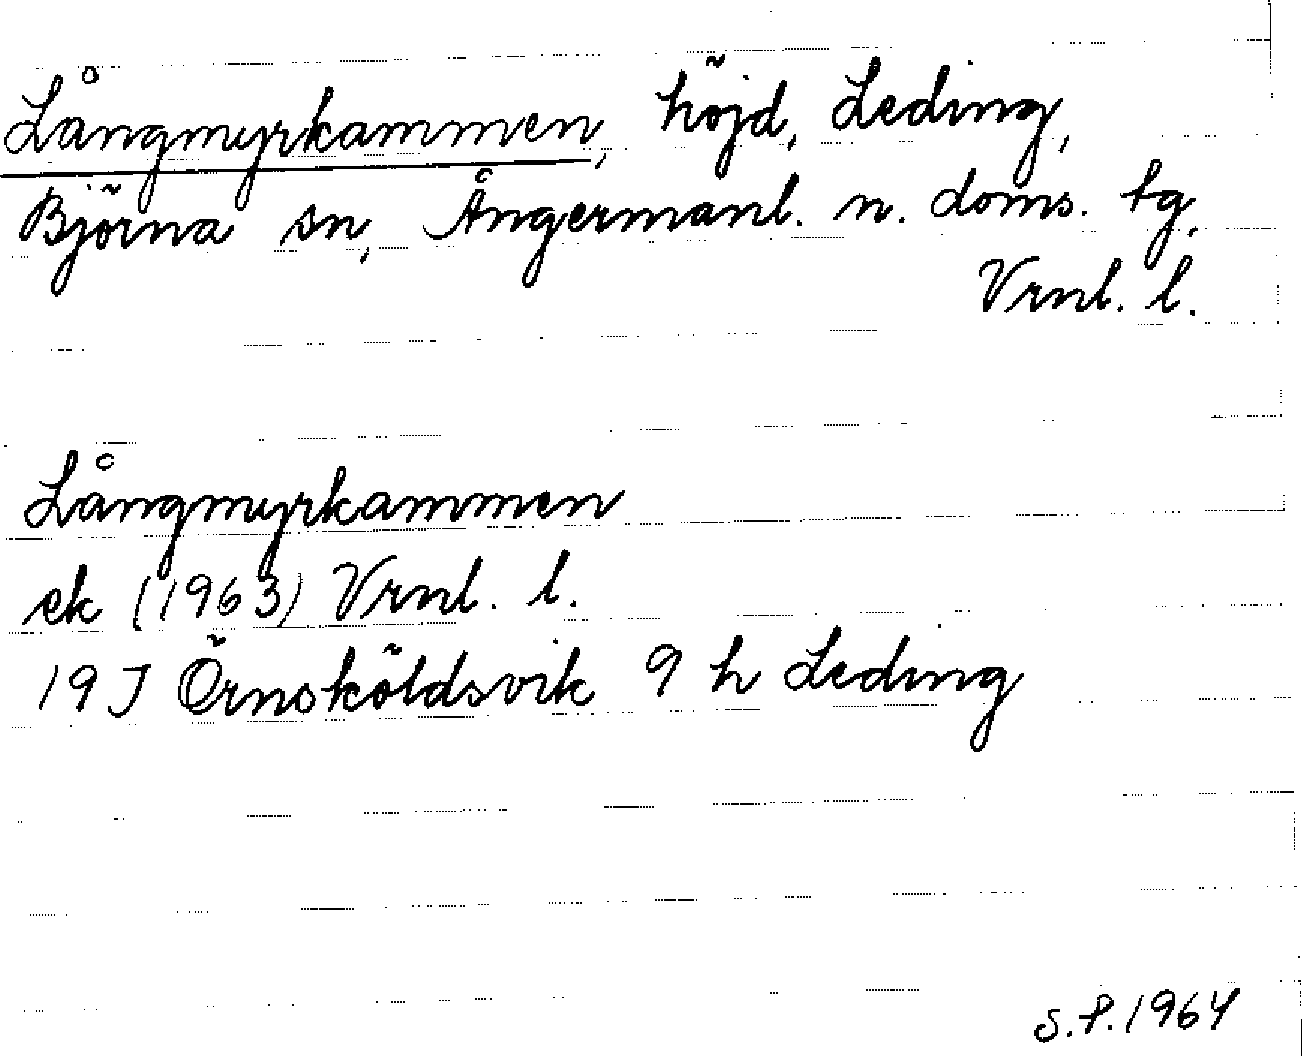 Långmyrkammen, höjd, Leding,
Björna sn, Ångermanl. n. doms. tg,
Vrnl. l.
Långmyrkammen
ek (1963) Vrnl. l.
19J Örnsköldsvik 9 h Leding
S.P. 1964